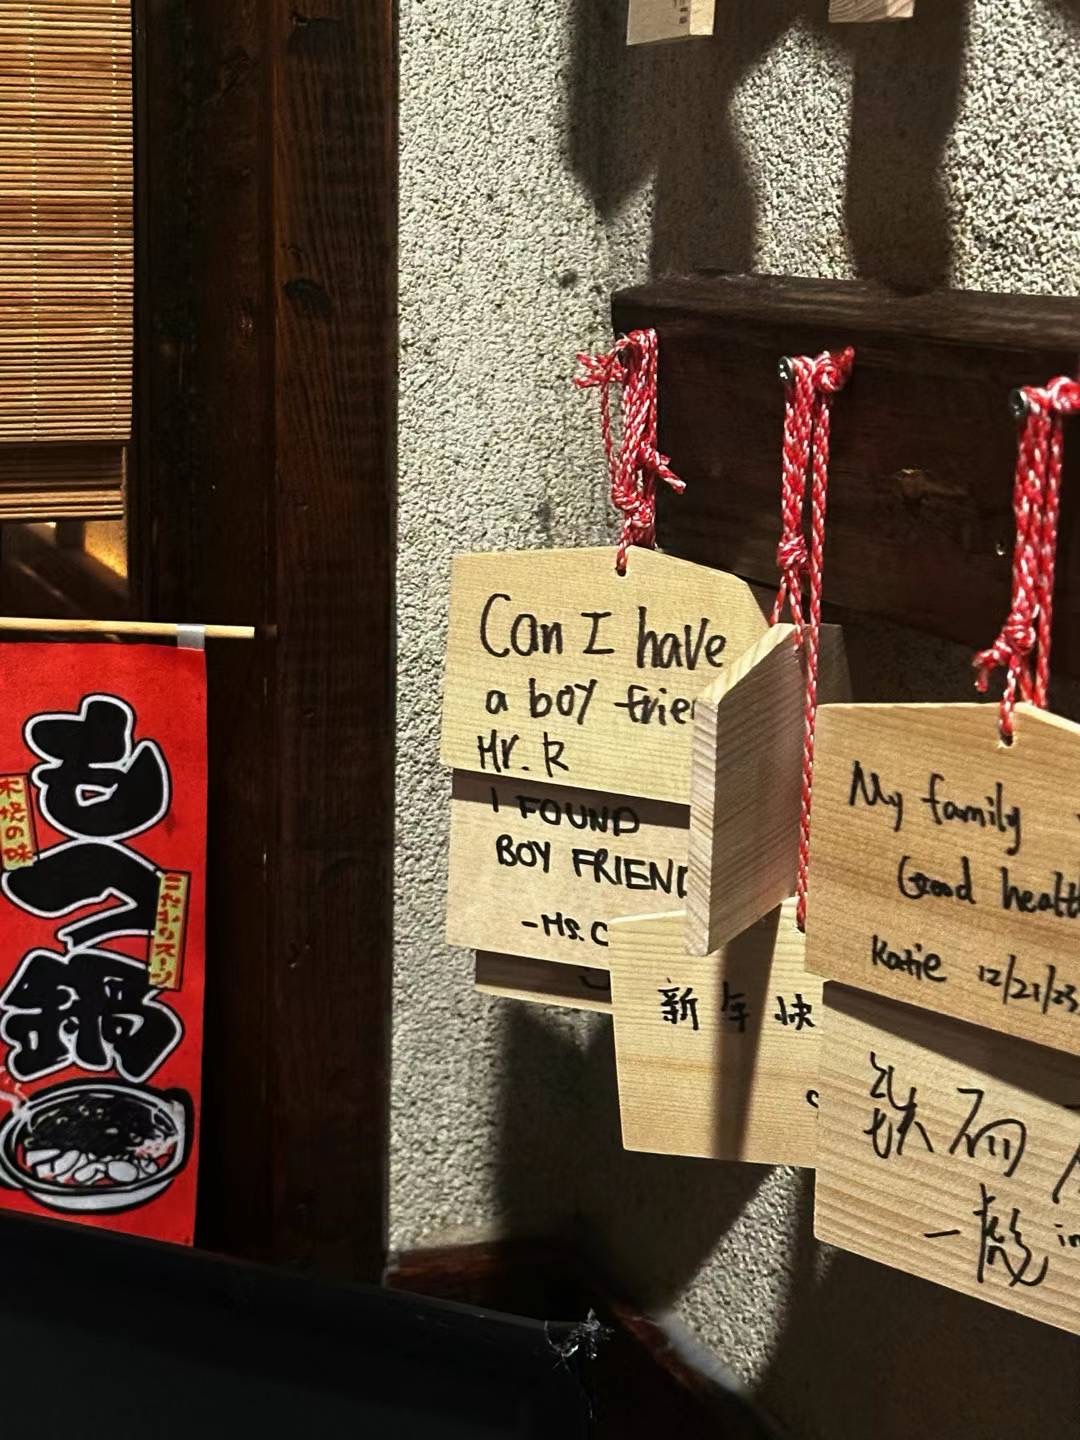 もつ鍋
本場の味
こだわりスープ
Can I have
a boy frie
Mr. R
I FOUND
BOY FRIEND
-Ms. C
新年快
My family
Good health
Katie 12/21/23
一
in